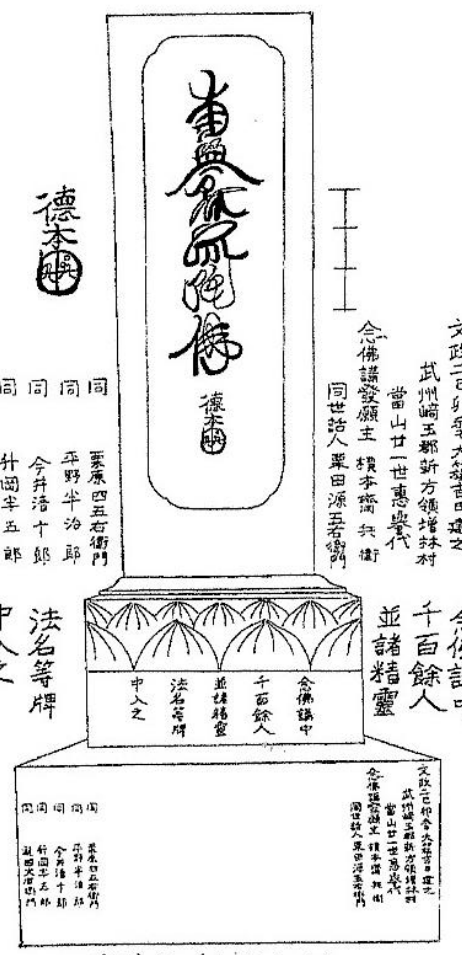 南無阿弥陀佛
德本
德本
文政二己卯 大簇吉日建之
武州﨑玉郡新方領増林村
當山廿一世惠譽代
念佛講發願主 榎本齋兵衛
同世話人 粟田源五右衛門
同 栗原四五右衛門
同 平野半治郎
同 今井清十郎
同 升岡半五郎
念佛講中
千百餘人
並諸精靈
法名等牌
中入之
念佛講中
千百餘人
並諸精靈
法名等牌
中入之
文政二己卯 大簇吉日建之
武州﨑玉郡新方領増林村
當山廿一世惠譽代
念佛講發願主 榎本齋兵衛
同世話人 粟田源五右衛門
同 栗原四五右衛門
同 平野半治郎
同 今井清十郎
同 升岡半五郎
同 右衛門